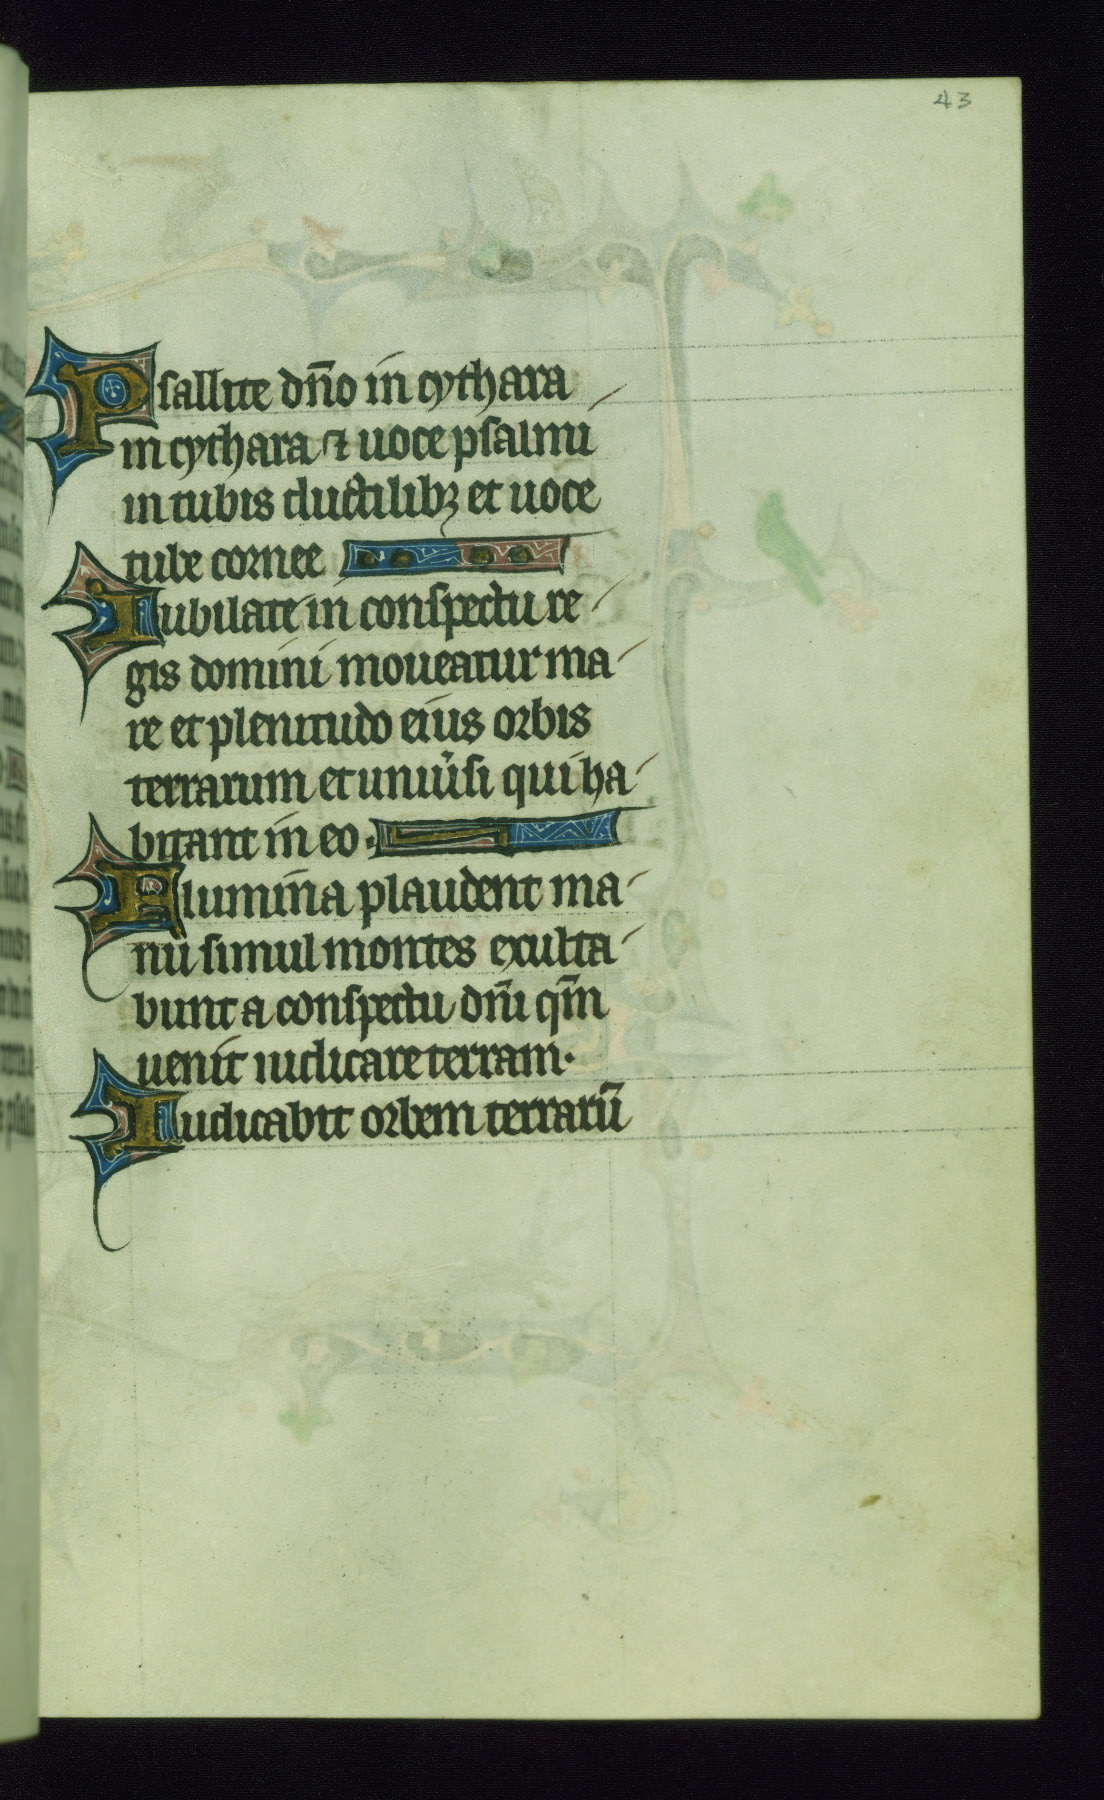 43
Psallite dn̄o in cythara
in cythara ⁊ uoce psalmi
in tubis ductilibꝫ et uoce
tube cornee
Iubilate in conspectu re
gis domini moueatur ma
re et plenitudo eius orbis
terrarum et uniu͛si qui ha
bitant in eo.
Flumina plaudent ma
nu simul montes exulta
bunt a conspectu dn̄i qm̄
uenit iudicare terram.
Iudicabit orbem terrarū